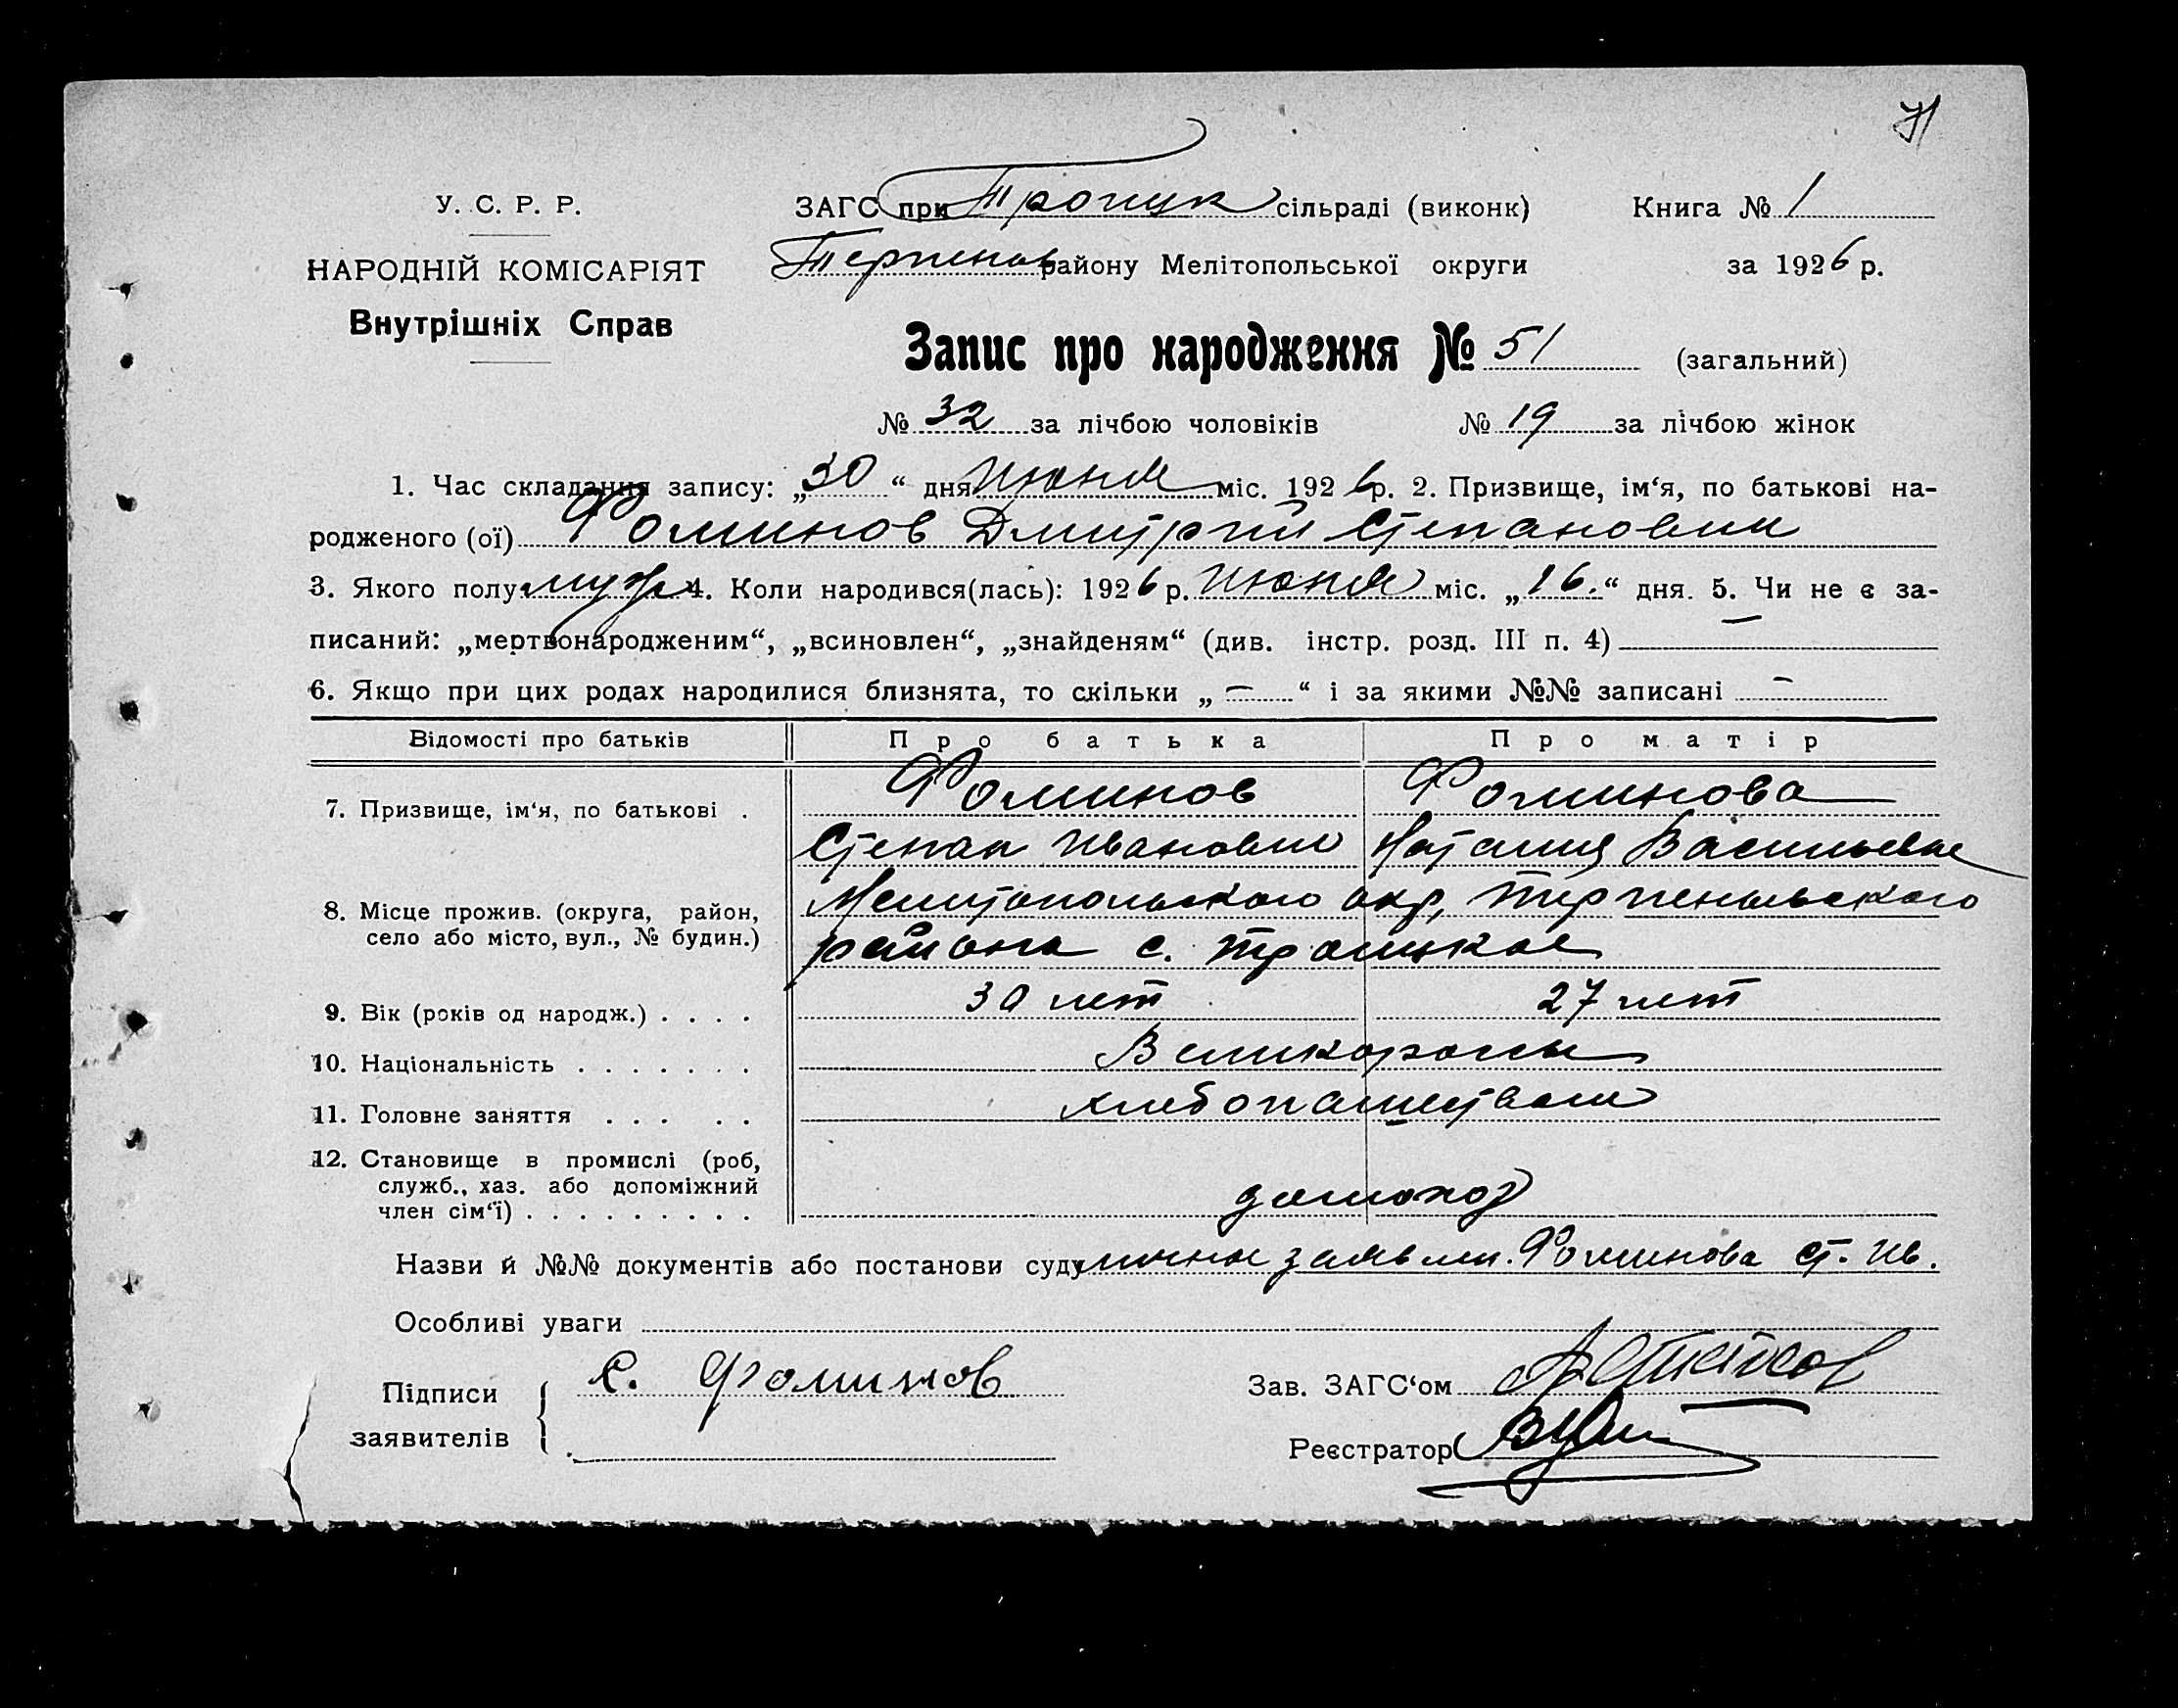 71
У. С. Р. Р.
НАРОДНІЙ КОМІСАРІЯТ
Внутрішніх Справ
ЗАГС при Троицк сільраді (виконк) Книга № 1
Терпенов району Мелітопольської округи за 1926 р.
Запис про народження № 51 (загальний)
№ 32 за лічбою чоловіків № 19 за лічбою жінок
1. Час складання запису: „30“ дня июня міс. 1926 р. 2. Призвище, ім‘я, по батькові на-
родженого (ої) Фоминов Дмитрий Степанович
3. Якого полу муж 4. Коли народився(лась): 1926 р. июня міс. „16.“ дня. 5. Чи не є за-
писаний: „мертвонародженим“, „всиновлен“, „знайденям“ (див. інстр. розд. III п. 4) —
6. Якщо при цих родах народилися близнята, то скільки „ — “ і за якими №№ записані —
Відомості про батьків Про батька Про матір
7. Призвище, ім‘я, по батькові . Фоминов Фоминова
Степан Иванович Наталия Васильевна
8. Місце прожив. (округа, район, село або місто, вул., № будин.) Мелитопольского окр, Терпеньевского
района с. Троицкое
9. Вік (років од народж.) . . . . 30 лет 27 лет
10. Національність . . . . . . . Великороссы
11. Головне заняття . . . . . хлебопашеством
12. Становище в промислі (роб,
служб., хаз. або допоміжний
член сім‘ї) . . . . . . . . . домохоз
Назви й №№ документів або постанови суду личное заявлен. Фоминова Ст. Ив.
Особливі уваги
Підписи заявителів С. Фоминов
Зав. ЗАГС‘ом
Реєстратор